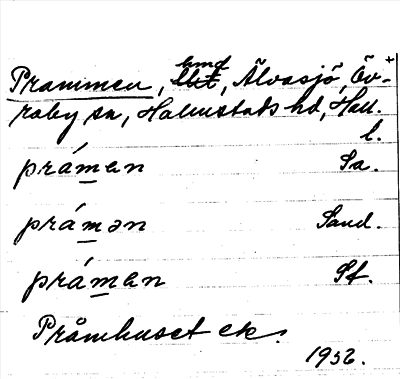 Prammen, hmd, Älvasjö, Öv-
raby sn, Halmstads hd, Hall.
l.
prámən Sa.
prámən Sand.
prámən Sf.
Pråmhuset ek.
1952.